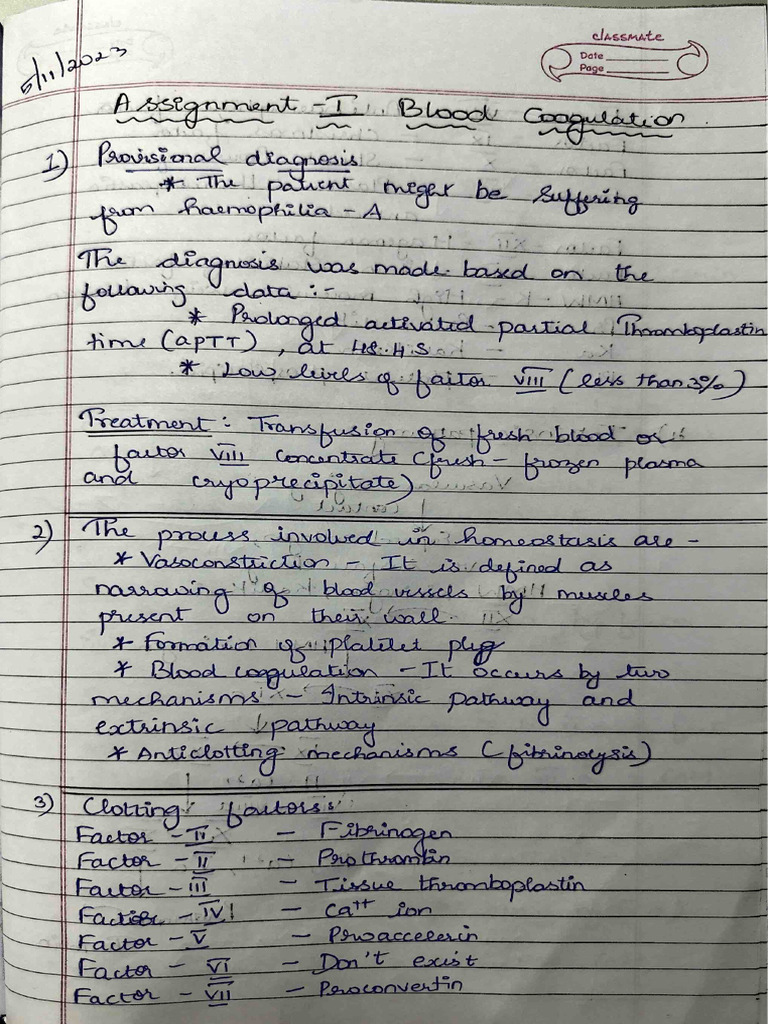 classmate
Date
Page
5/11/2023
Assignment - I Blood Coagulation.
1) Provisional diagnosis
* The patient might be suffering
from haemophilia - A
The diagnosis was made based on the
following data :-
* Prolonged activated partial Thromboplastin
time (aPTT), at 48.4S
* Low levels of factor VIII (less than 3%)
Treatment : Transfusion of fresh blood or
factor VIII concentrate (fresh - frozen plasma
and cryoprecipitate)
2) The process involved in homeostasis are -
* Vasoconstriction - It is defined as
narrowing of blood vessels by muscles
present on their wall.
* Formation of platelet plug
* Blood coagulation - It occurs by two
mechanisms - Intrinsic pathway and
extrinsic pathway
* Anticlotting mechanisms (fibrinolysis)
3) Clotting factors:
Factor - - Fibrinogen
Factor - II - Prothrombin
Factor - III - Tissue thromboplastin
Factor - IV - Ca++ ion
Factor - V - Proaccelerin
Factor - VI - Don't exist
Factor - VII - Proconvertin